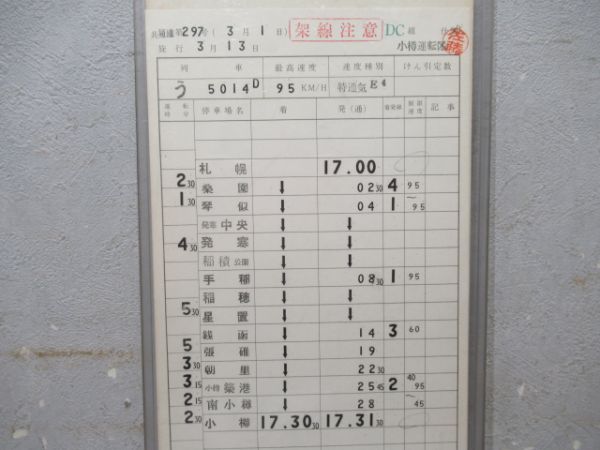 297号 (3月1日) 架線注意 DC
施行 3月13日 小樽運転区
列 車 最高速度 速度種別 けん引定数
う 5014D 95 KM/H 特通気E4
運転時分 停車場名 着 発(通) 着発線 制限速度 記事
札幌 17.00
2 30 桑園 ↓ 02 30 4 95
1 30 琴似 ↓ 04 1 ~95
発寒中央 ↓ ↓
4 30 発寒 ↓ ↓
稲積公園 ↓ ↓
手稲 ↓ 08 30 1 95
稲穂 ↓ ↓
5 30 星置 ↓ ↓
銭函 ↓ 14 3 60
5 張碓 ↓ 19
3 30 朝里 ↓ 22 30
3 15 小樽築港 ↓ 25 45 2 40 95
2 15 南小樽 ↓ 28 45
2 30 小樽 17.30 30 17.31 30